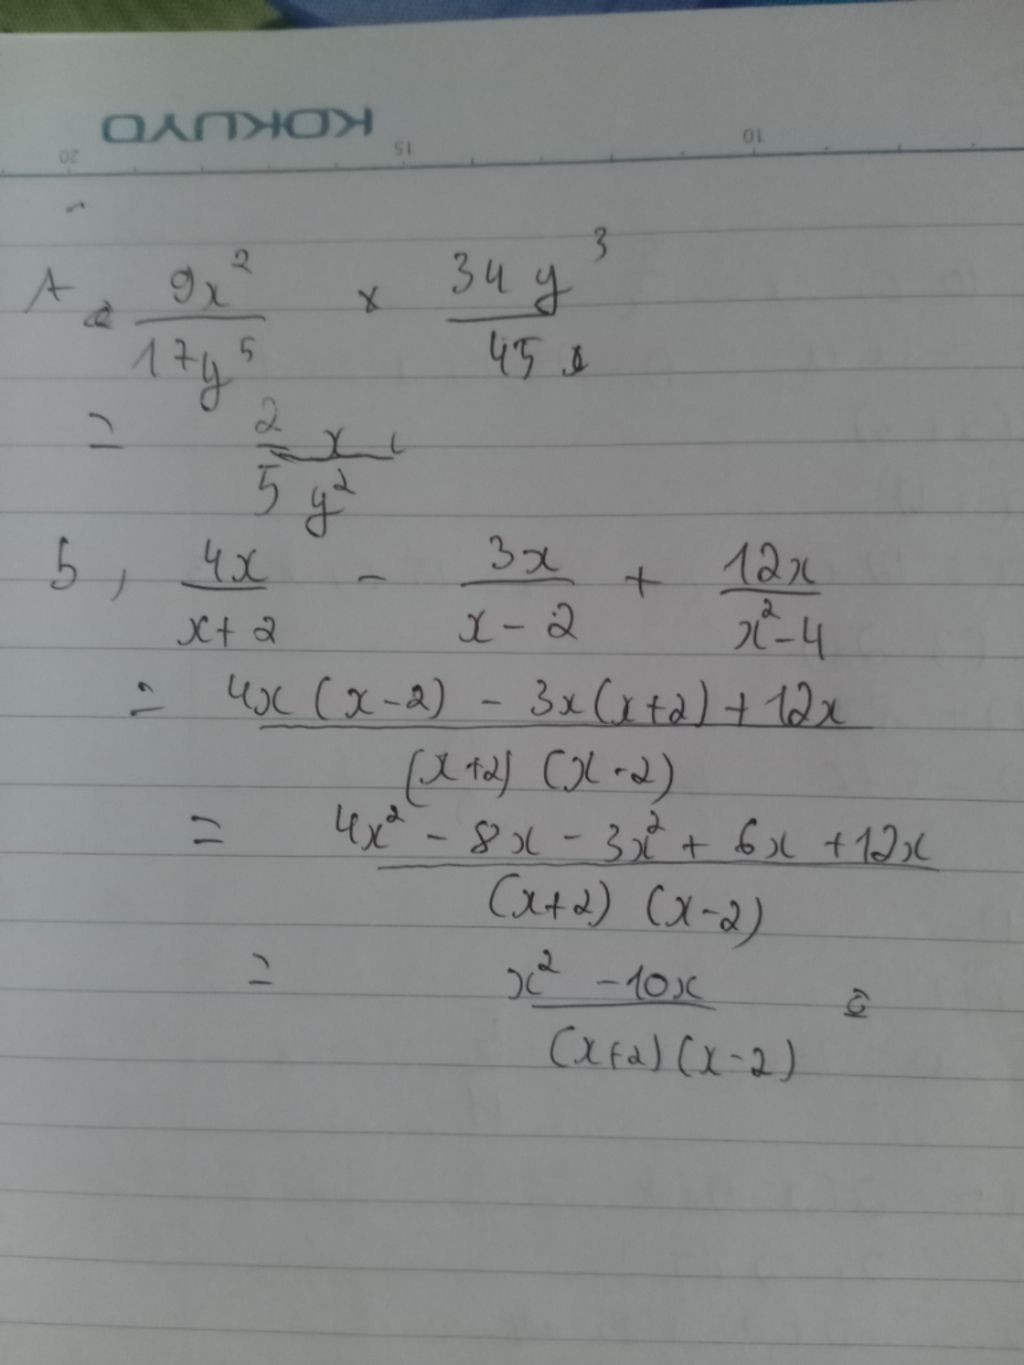 KOKUYO
20 15 10
A = 9x²/17y⁵ × 34y³/45x
= 2x/5y²
b, 4x/x+2 - 3x/x-2 + 12x/x²-4
= 4x(x-2) - 3x(x+2) + 12x/(x+2)(x-2)
= 4x² - 8x - 3x² + 6x + 12x/(x+2)(x-2)
= x² - 10x/(x+2)(x-2)